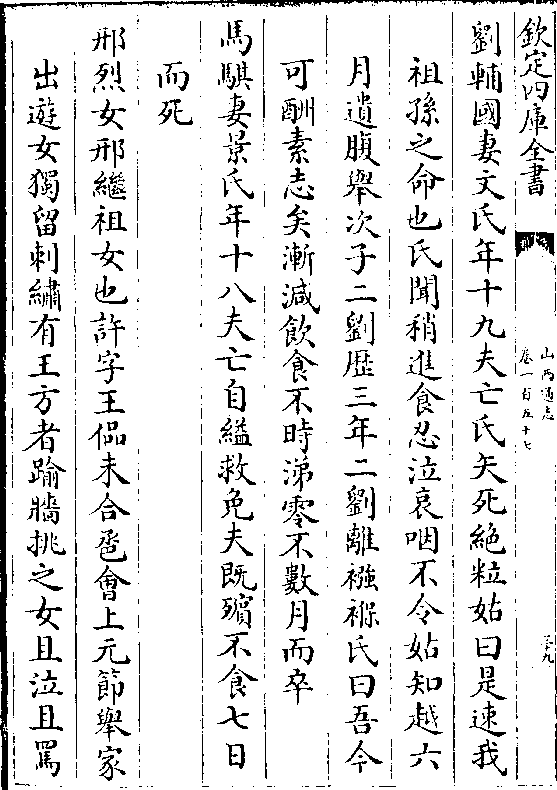 欽定四庫全書
山西通志
卷一百五十七
三九
劉輔國妻文氏年十九夫亡氏矢死絶粒姑曰是速我
祖孫之命也氏聞稍進食忍泣哀咽不令姑知越六
月遺腹舉次子二劉歴三年二劉離襁褓氏曰吾今
可酬素志矣漸減飲食不時涕零不數月而卒
馬騏妻景氏年十八夫亡自縊救免夫既殯不食七日
而死
邢烈女邢繼祖女也許字王偘未合卺會上元節舉家
出遊女獨留刺繡有王方者踰牆挑之女且泣且罵